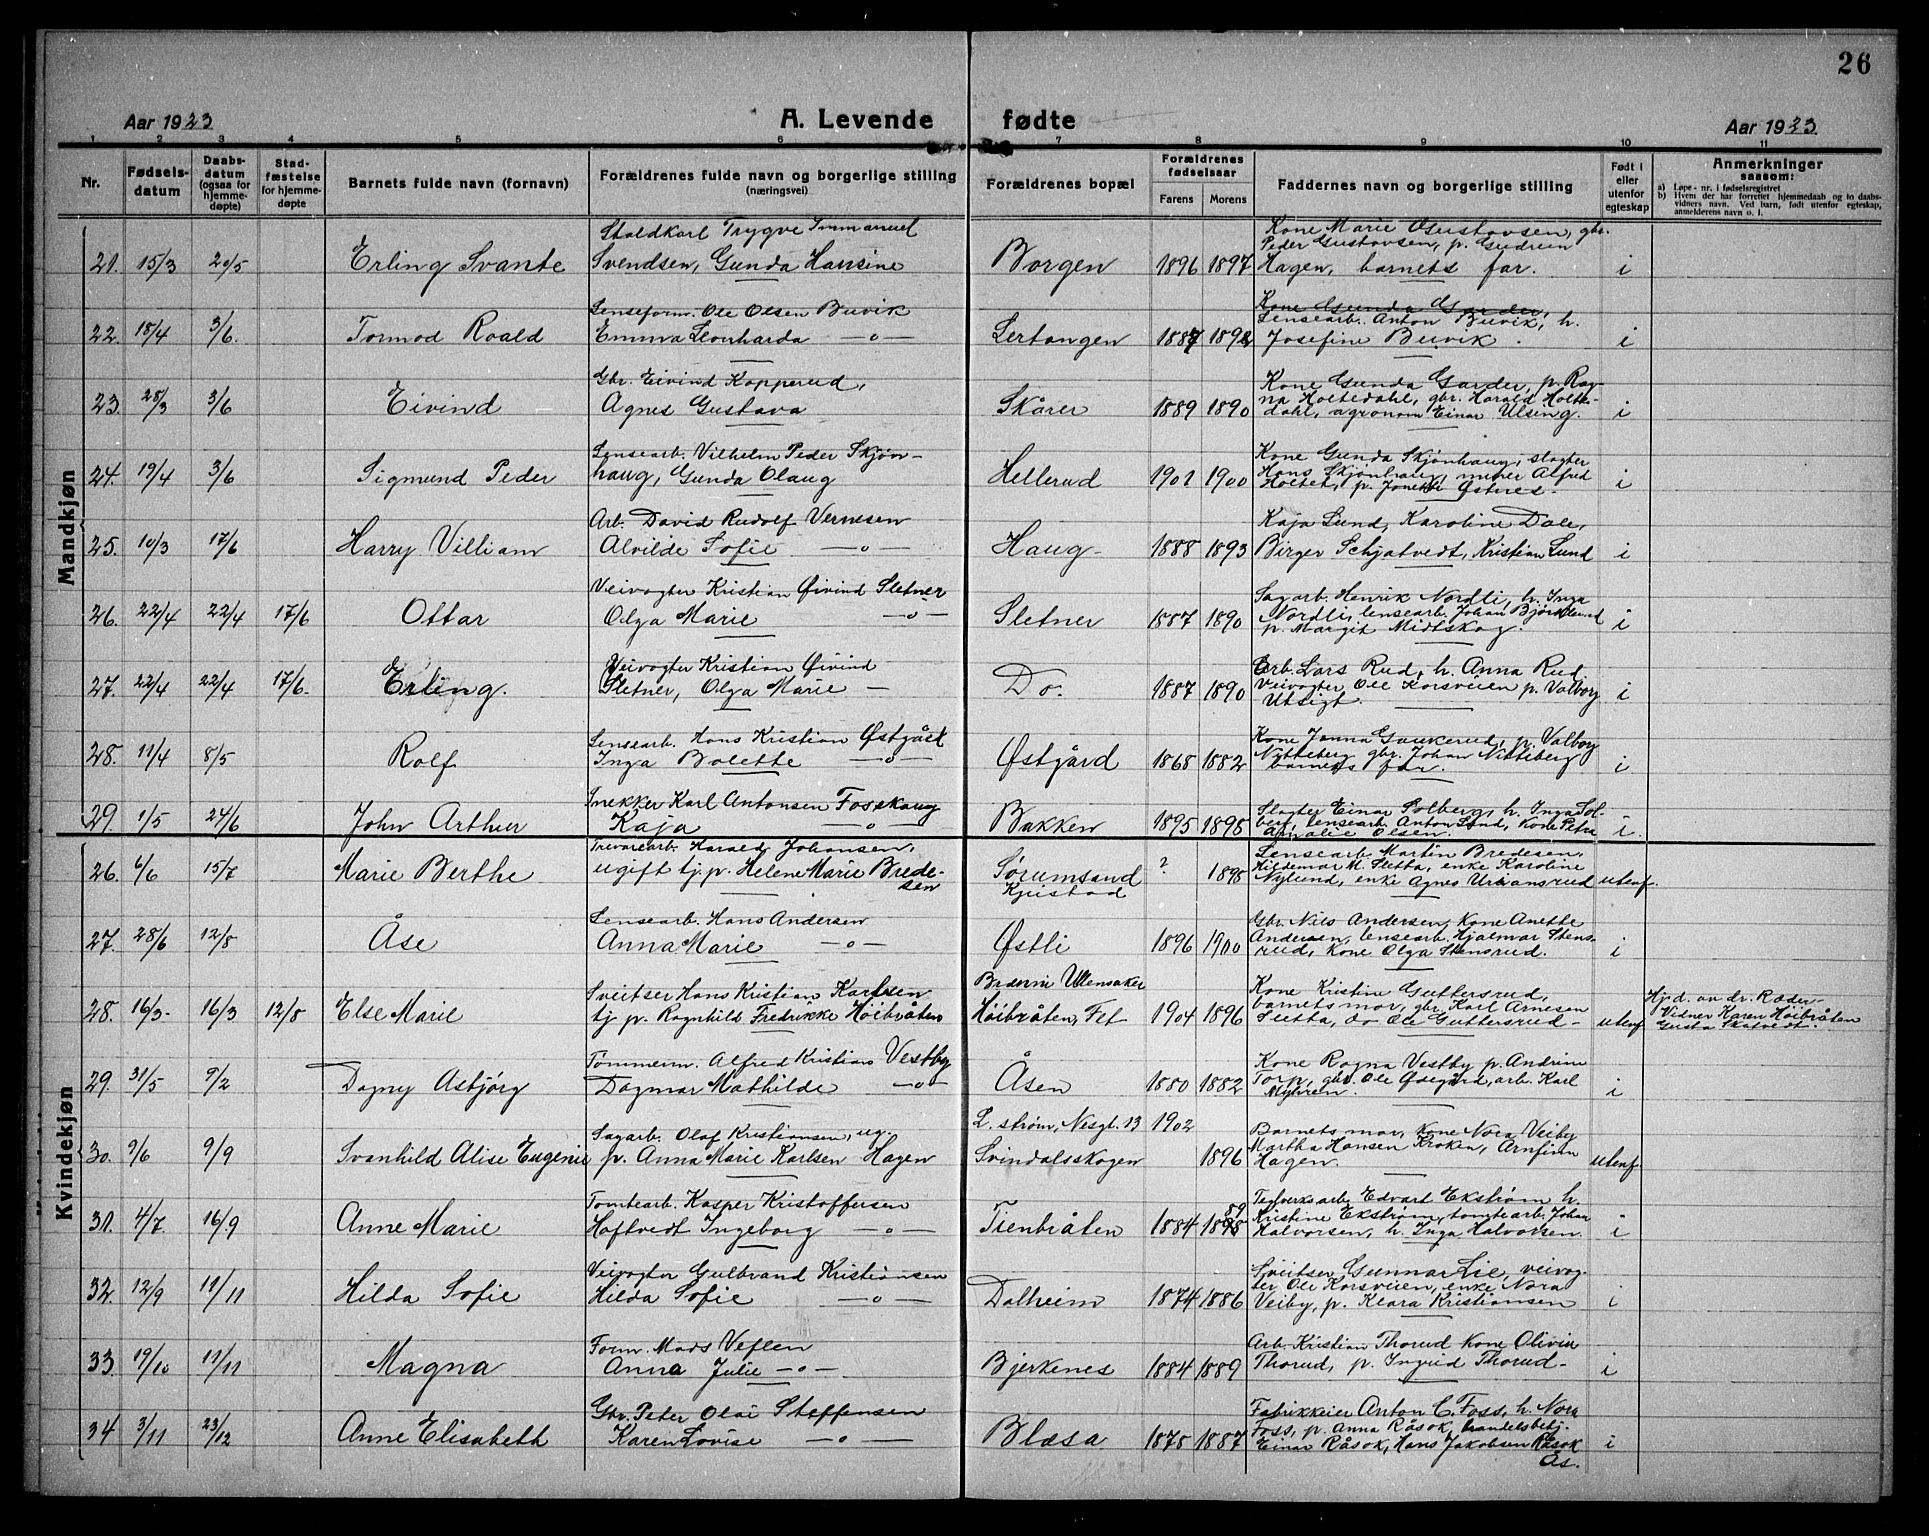 26
Aar 1923 A. Levende fødte Aar 1923
1 2 3 4 5 6 7 8 9 10 11
Nr. Fødselsdatum Daabsdatum (ogsaa for hjemmedøpte) Stadfæstelse for hjemmedøpte Barnets fulde navn (fornavn) Forældrenes fulde navn og borgerlige stilling (næringsvei) Forældrenes bopæl Forældrenes fødselsaar Farens Morens Faddernes navn og borgerlig stilling Født i eller utenfor egteskap Anmerkninger saasom:
a) Løpe-nr. i fødselsregistret
b) Hvem der har forrettet hjemmedaab og to daabsvidners navn. Ved barn, født utenfor egteskap, anmelderens navn o. l.
Mandkjøn
Staldkarl Trygve Immanuel Kone Marie Gustavsen, gbr.
Peder Gustavsen, p. Gudrun
21. 15/3 20/5 Erling Svante Svendsen, Gunda Hansine Borgen 1896 1897 Hagen, barnets far. i
Lenseform. Ole Olsen Buvik Kone Gunda Garder,
Lensearb. Anton Buvik, h.
22. 18/4 3/6. Tormod Roald Emma Leonharda —o— Lertangen 1887 1892 Josefine Buvik. i
Gbr. Eivind Kopperud, Kone Gunda Garder, p. Rag-
na Holtedahl, gbr. Harald Holte-
23. 28/3 3/6 Eivind Agnes Gustava Skårer 1889 1890 dahl, agronom Einar Ulseng. i
Lensearb. Vilhelm Peder Skjøn- Kone Gunda Skjønhaug, slagter
Hans Skjønhaug, murer Alfred
24. 19/4 3/6 Sigmund Peder haug, Gunda Olaug Hellerud 1901 1900 Holtet, p. Østnes. i
Arb. David Rudolf Vernesen Kaja Lund, Karoline Dale,
25. 10/3 17/6 Harry Villiam Alvilde Sofie —o— Haug 1888 1893 Birger Schjatvedt, Kristian Lund i
Veivogter Kristian Øivind Sletner Sagarb. Henrik Nordli, h. Inga
Nordli, lensearb. Johan Bjørklund
26. 22/4 22/4 17/6 Ottar Olga Marie —o— Sletner 1887 1890 p. Margit Midtskog. i
Veivogter Kristian Øivind Arb. Lars Rud, h. Anna Rud
Veivogter Ole Korsveien p. Valborg
27. 22/4 22/4 17/6. Erling. Sletner, Olga Marie — Do. 1887 1890 Utsigt. i
Lensearb. Hans Kristian Østgård Kone Janna Gaukerud, p. Valborg
Nitteberg gbr. Johan Nitteberg
28. 11/4 8/5 Rolf Inga Bolette —o— Østgård 1868 1882 barnets far. i
Snekker Karl Antonsen Fosshaug Slagter Einar Solberg, h. Inga Sol-
berg, lensearb. Anton Lund, Kone Petra
29. 1/5 24/6 John Arthur Kaja —o— Bakken 1895 1895 Amalie Olsen. i.
Kvindekjøn
Trevarearb. Harald Johansen, Lensearb. Martin Bredesen,
Hildemar M. Sletta, enke Karoline
26. 6/6 15/7 Marie Berthe ugift tj. p. Helene Marie Brede- Sørumsand ? 1895 Nylund, enke Agnes Uriansrud utenf.
sen
Lensearb. Hans Andersen Gbr. Nils Andersen, Kone Anette
Andersen, lensearb. Hjalmar Stens-
27. 28/6 12/8 Åse Anna Marie —o— Østli 1896 1900 rud, Kone Olga Stensrud. i
Sveitser Hans Kristian Karlsen Ullensaker Kone Kristine Guttersrud,
barnets mor, gbr. Karl Arnesen
28. 16/3 16/3 12/8 Else Marie tj. p. Ragnhild Fredrikke Høibråten Høibråten, Fet 1904 1896 Sletta, do Ole Guttersrud utenf.
Hj.d. av dr. Ræder
Vidner Karen Høibråten
Gusta Skatvedt.
Tømmerm. Alfred Kristians Vestby Kone Ragna Vestby p. Andrine
Torp, gbr. Ole Ødegård, arb. Karl
29. 31/5 9/2 Dagny Asbjørg Dagmar Mathilde —o— Åsen 1880 1882 Myhren. i
L. strøm, Nesgt. 13 1902
Sagarb. Olaf Kristiansen, ug. Barnets mor, Kone Nora Veiby
Martha Hansen Kroken, Arnfinn
30. 9/6 9/9 Svanhild Alise Eugenie p. Anna Marie Karlsen Hagen Svindalsskogen 1896 Hagen. utenf
Tomtearb. Kasper Kristoffersen Teglverksarb. Edvart Ekstrøm h.
89 Kristine Ekstrøm, tomtearb. Johan
31. 4/7 16/9 Anne Marie Haftvedt Ingeborg —o— Tienbråten 1884 Halvorsen, h. Inga Halvorsen. i
Veivogter Gulbrand Kristiansen Sveitser Gunnar Lie, veivog-
ter Ole Korsveien, enke Nora
32. 12/9 11/11 Hilda Sofie Hilda Sofie —o— Dalheim 1874 1886 Veiby, p. Klara Kristiansen i
Form. Mads Veflen Arb. Kristian Thorud Kone Olivia
33. 19/10 11/11 Magna Anna Julie —o— Bjerkenes 1884 1889 Thorud, p. Ingrid Thorud i
Gbr. Peter Olai Steffensen Fabrikkeier Anton C. Foss, h. Nora
Foss, p. Anna Råsok, handelsbetj.
34 3/11 23/12 Anne Elisabeth Karen Lovise —o— Blæsa 1875 1887 Einar Råsok, Hans Jakobsen Råsok i
Ås.